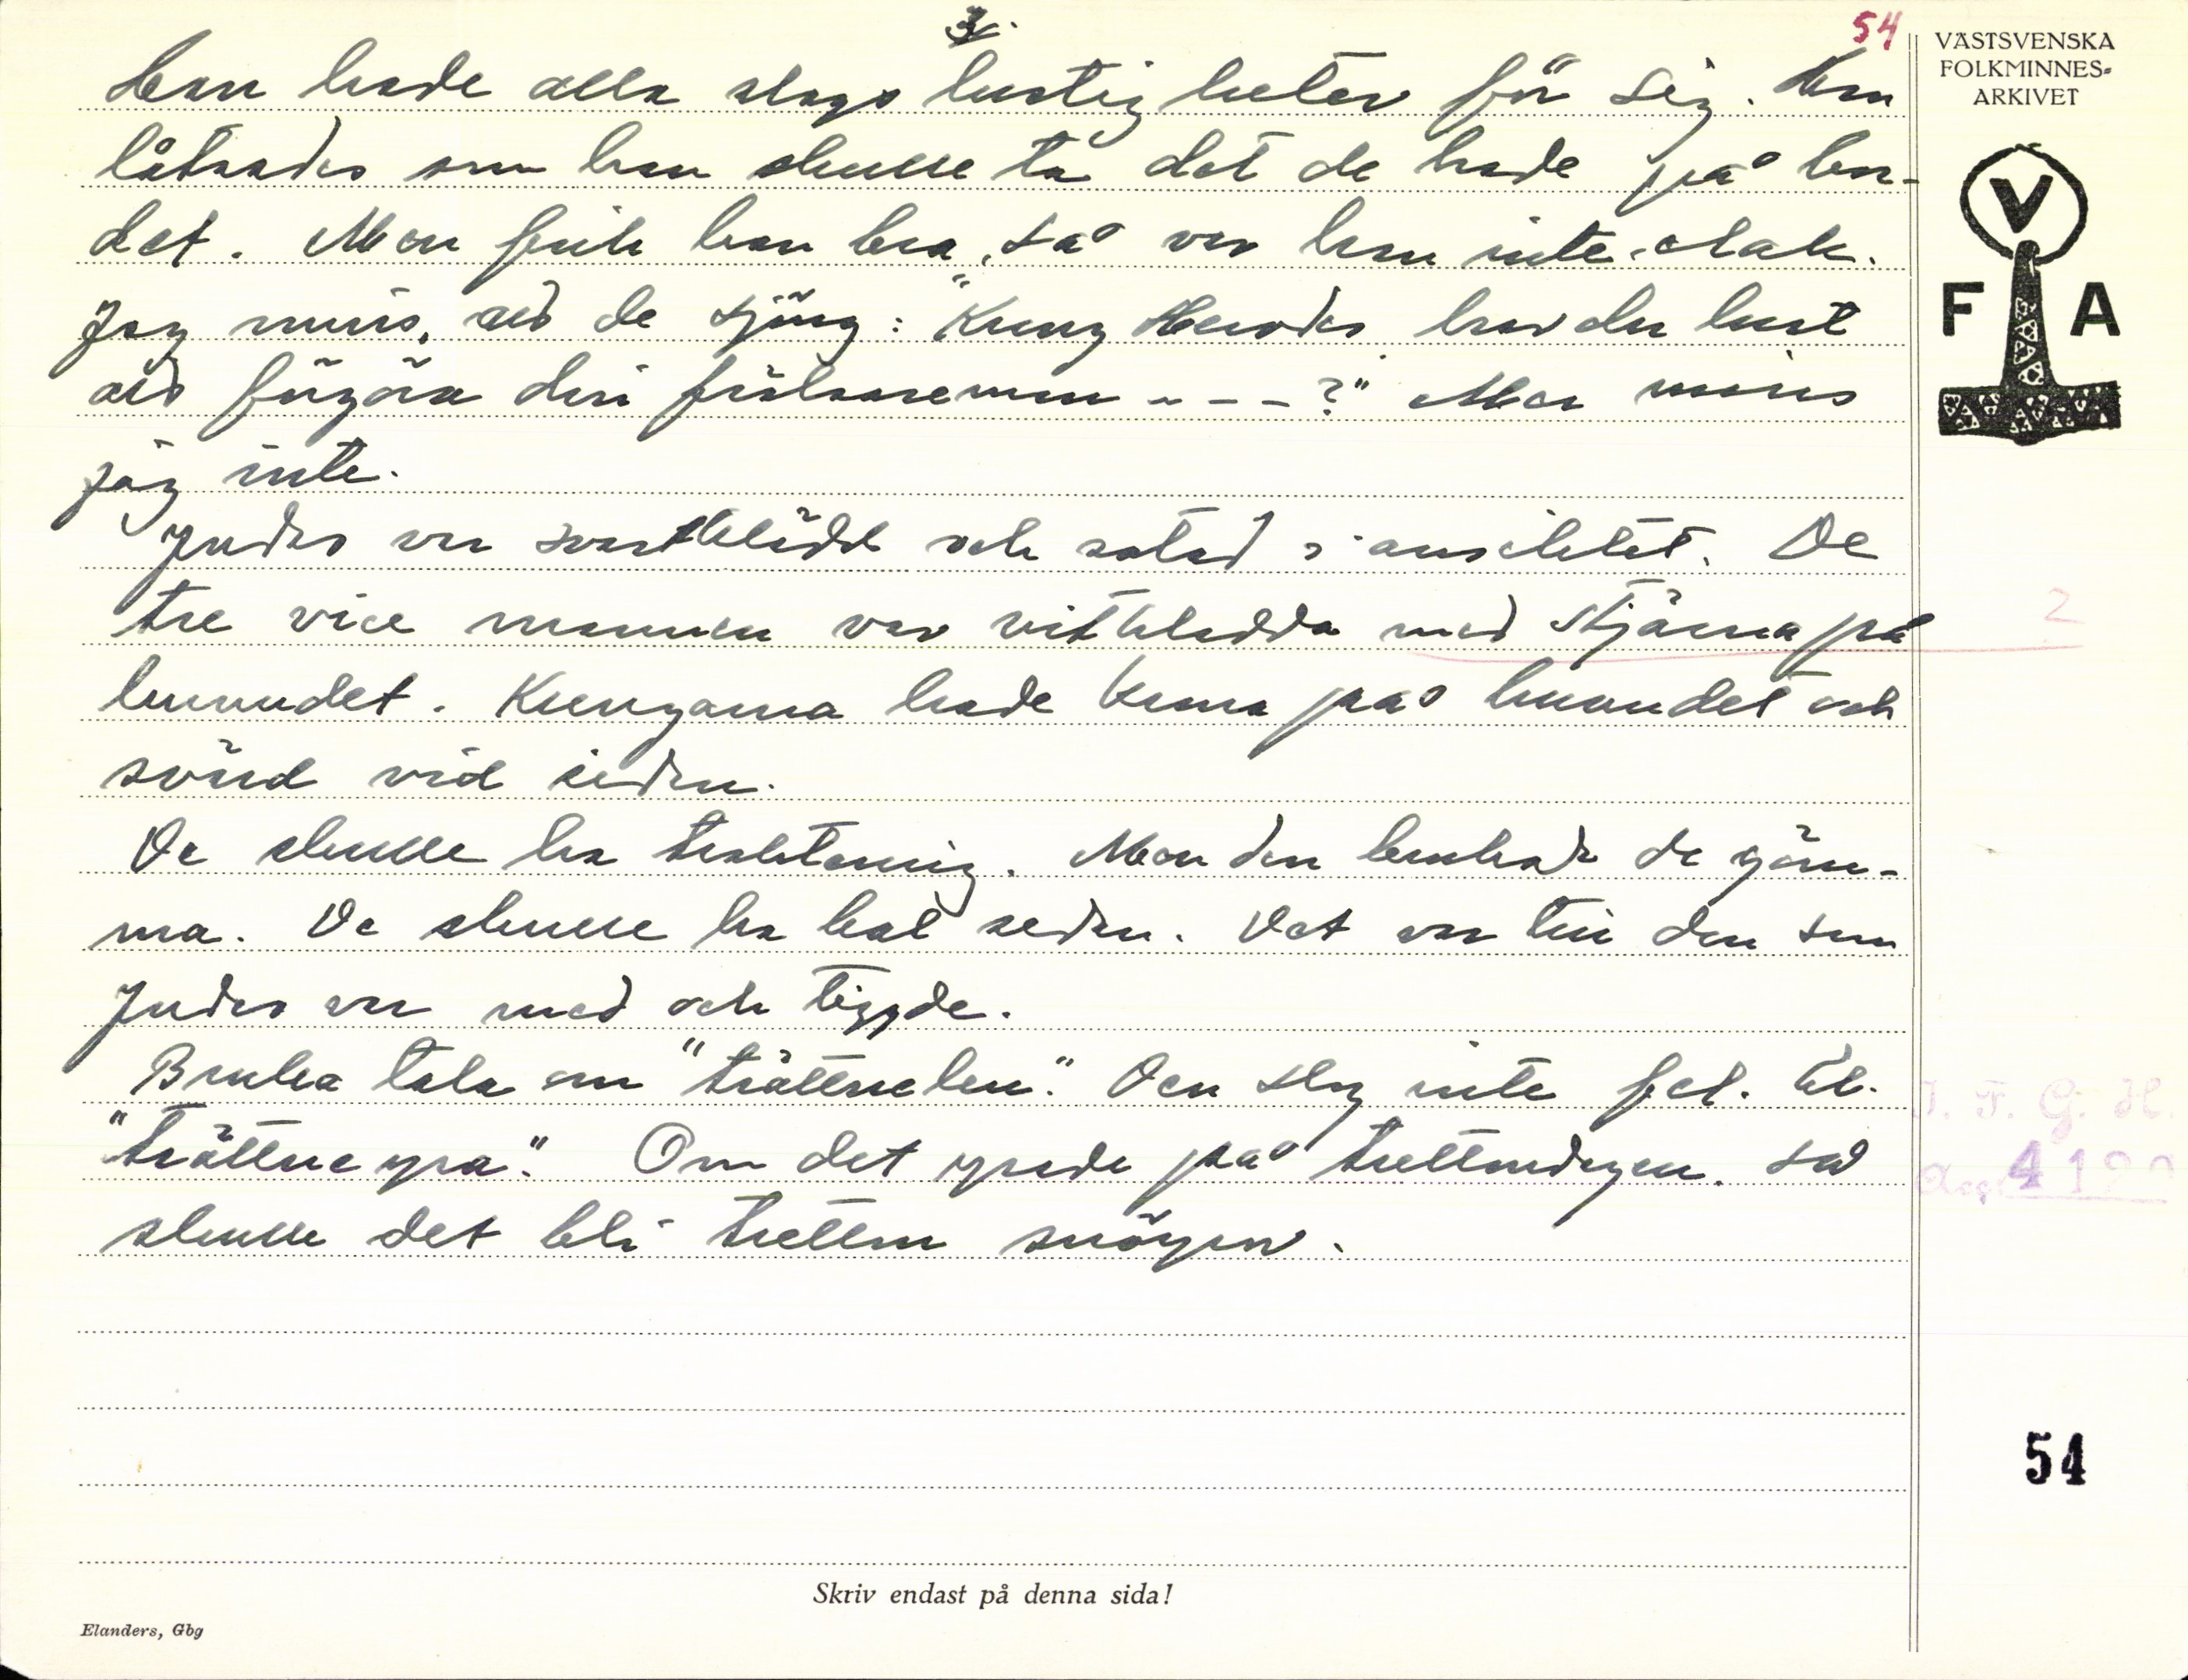 3.
54
Han hade alla slags lustigheter för sig. Han
låtsades som han skulle ta det de hade på bor-
det. Men fick han bra, så var han inte elak.
Jag minns, att de sjöng: "Kung Herodes har du lust
att förgöra din frälsareman - - - ?" Mer minns
jag inte.
Judas var svartklädd och sotad i ansiktet. De
tre vise männen var vitklädda med stjärna på
huvudet. Kungarna hade krona på huvudet och
svärd vid sidan.
De skulle ha traktering. Men den brukade de göm-
ma. De skulle ha bal sedan. Det var till den som
Judas var med och tiggde.
Bruka tala om "trättne
Den slog inte fel.
"trättneyra". Om det yrade på trettondagen. så
skulle det bli tretton snöyror.
VÄSTSVENSKA
FOLKMINNES-
ARKIVET
V
F A
2
I. F. G. H.
Acc. 4
54
Skriv endast på denna sida!
Elanders, Gbg